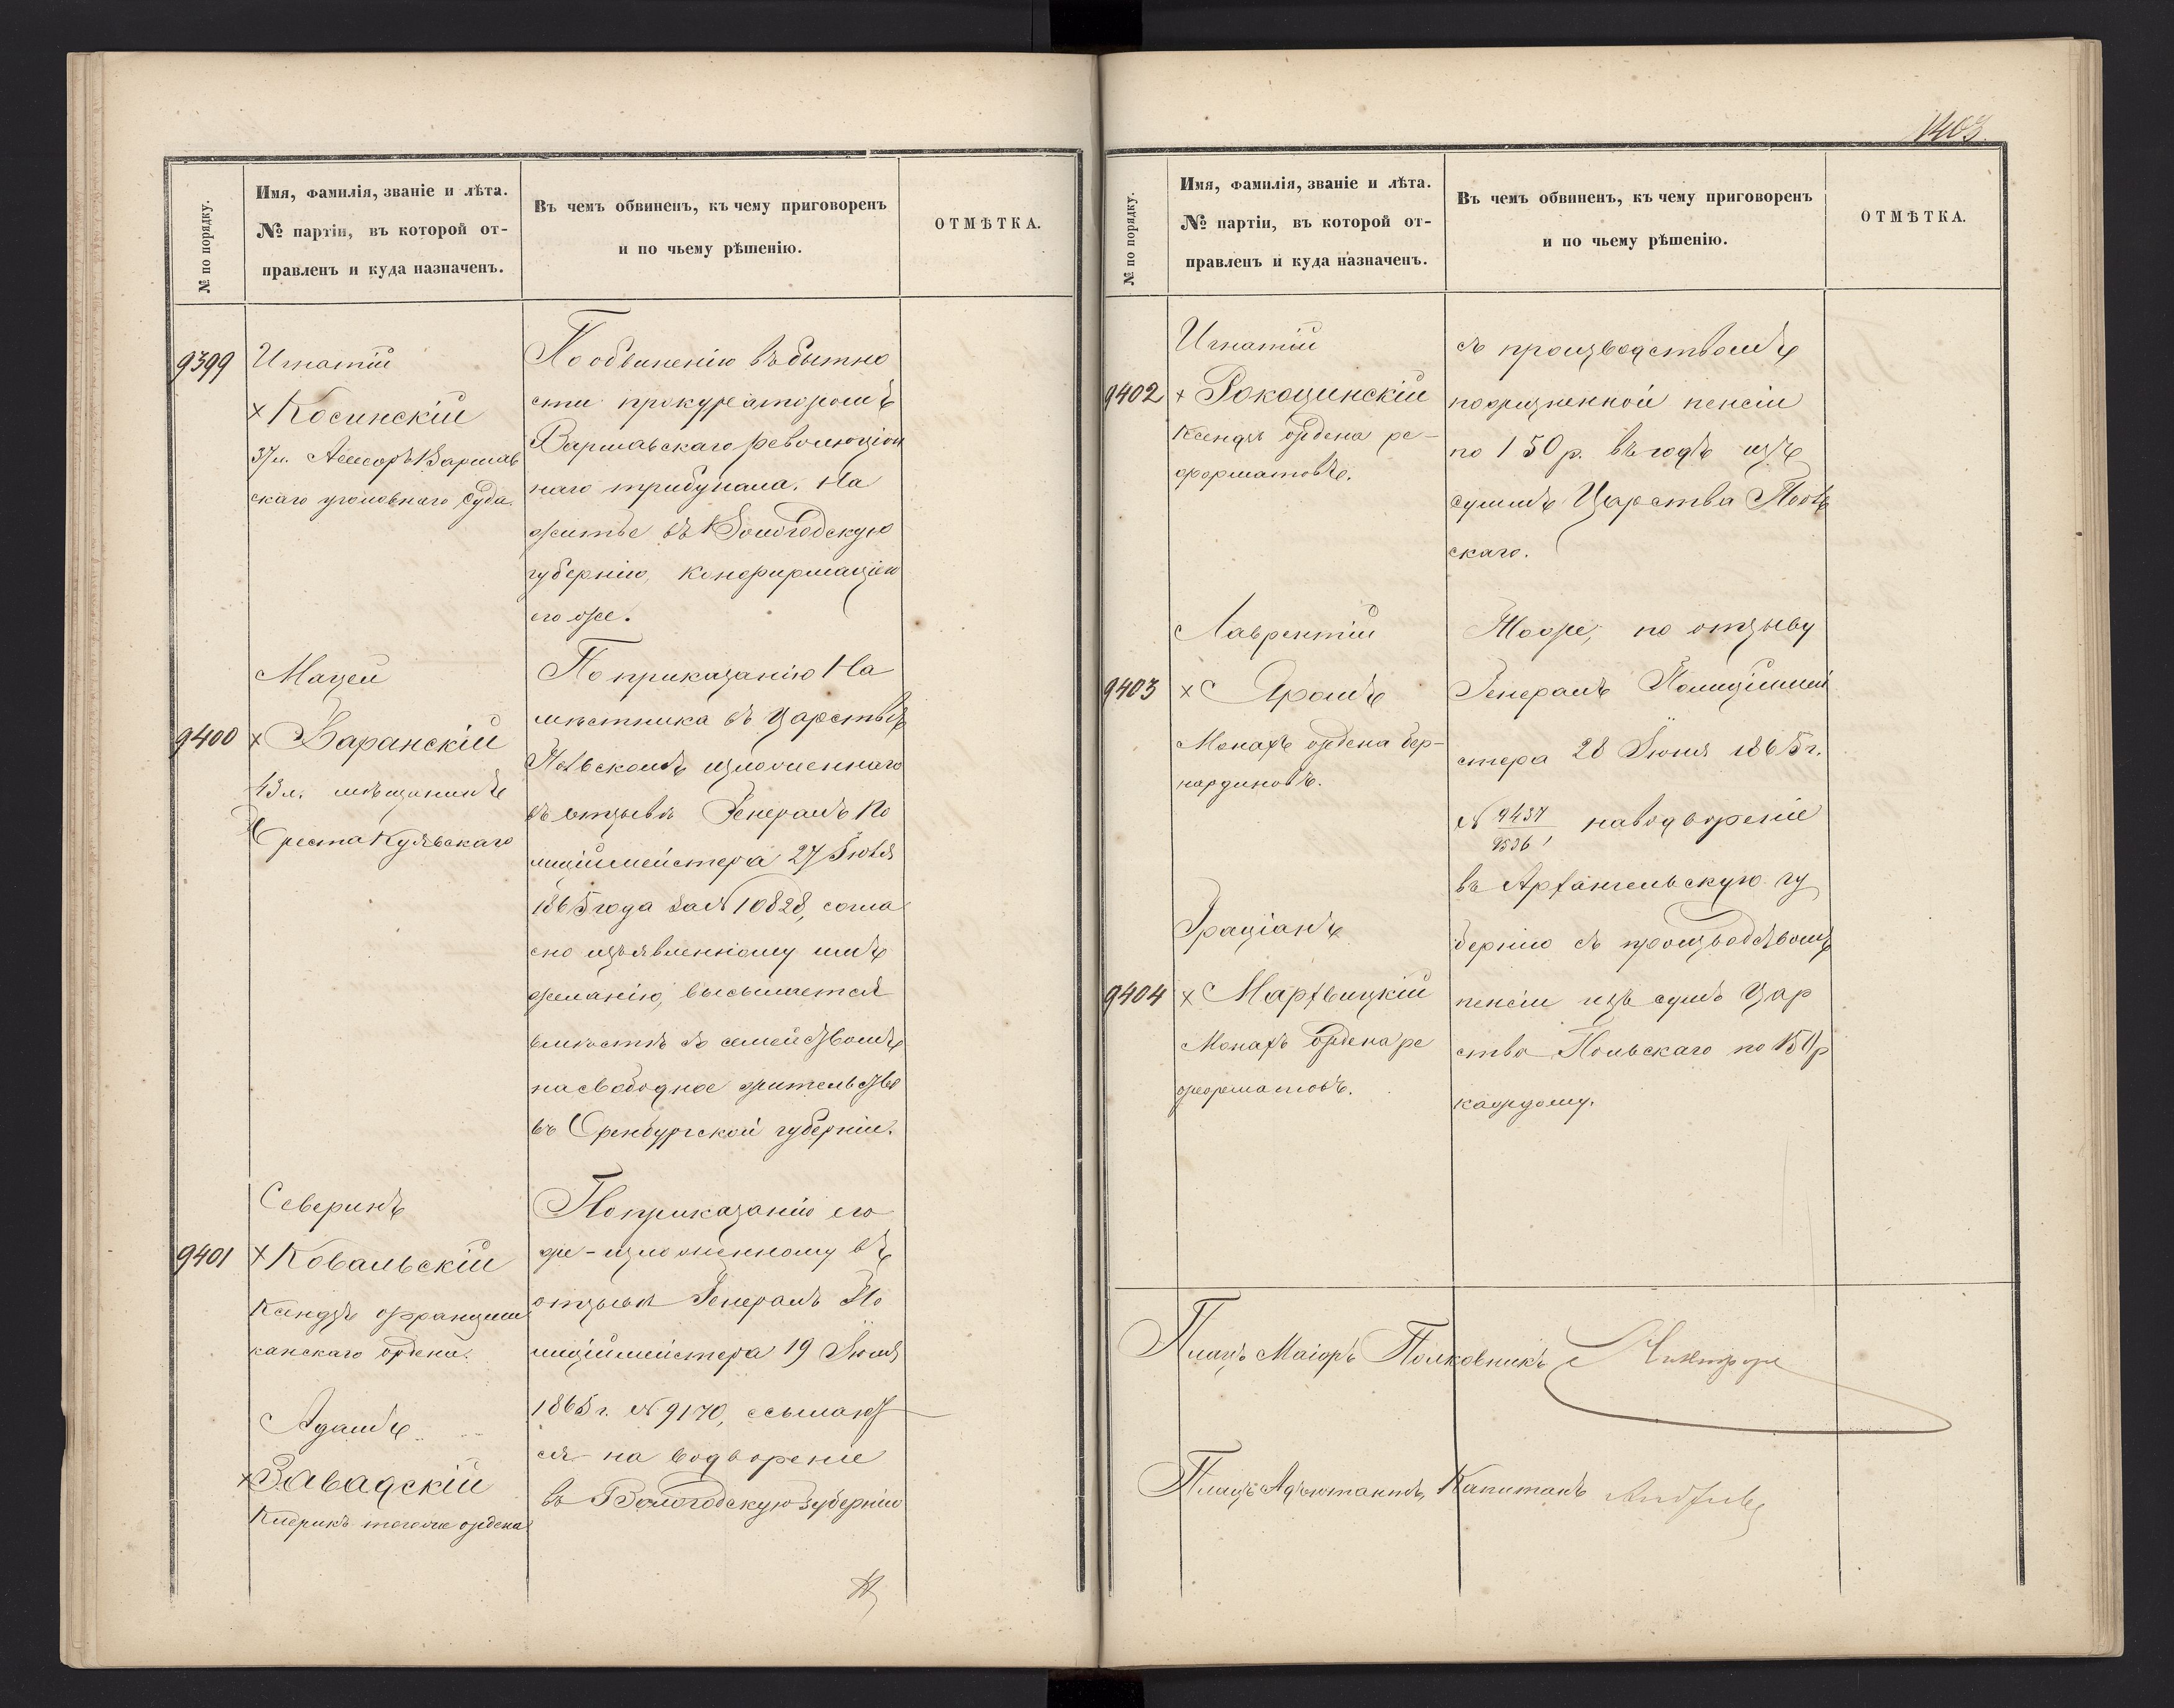 № по порядку.
Имя, фамилія, званіе и лѣта.
№ партіи, въ которой от-
правленъ и куда назначенъ.
Въ чемъ обвиненъ, къ чему приговоренъ
и по чьему рѣшенію.
ОТМѢТКА.
9399
Игнатій
× Косинскій
37 л. Асесоръ Варшав
скаго уголовнаго суда.
По обвиненію въ бытно
сти прокураторомъ
Варшавскаго революціон
наго трибунала. На
житье въ Вологодскую
губернію, конфирмаціею
его же.
9400
Мацей
× Баранскій
43 л. мѣщанинъ
Бреста Куявскаго
По приказанію На
мѣстника въ Царствѣ
Польскомъ изложеннаго
въ отзывѣ Генералъ По
лиціймейстера 27 Іюля
1865 года за № 10828, согла
сно изъявленному имъ
желанію, высылается
вмѣстѣ съ семействомъ
на свободное жительство
въ Оренбургской губерніи.
9401
Северинъ
× Ковальскій
Ксендзъ францыш
канскаго ордена.
Адамъ
× Завадскій
Клерикъ тогоже ордена
По приказанію его
же - изложенному въ
отзывѣ Генералъ По
лиціймейстера 19 Іюня
1865 г. № 9170, ссылают
ся на водвореніе
въ Вологодскую губернію
1403.
№ по порядку.
Имя, фамилія, званіе и лѣта.
№ партіи, въ которой от-
правленъ и куда назначенъ.
Въ чемъ обвиненъ, къ чему приговоренъ
и по чьему рѣшенію.
ОТМѢТКА.
Игнатій
9402 × Рокоцинскій
Ксендзъ ордена ре-
форматовъ.
съ производствомъ
пожизненной пенсіи
по 150 р. въ годъ изъ
суммъ Царства Поль
скаго.
Лаврентій
9403 × Яромъ
Монахъ ордена бер-
нардиновъ.
Тоже, по отзыву
Генералъ Полиціймей
стера 28 Іюня 1865 г.
№ 9437/9526, на водвореніе
въ Архангельскую гу
бернію съ производствомъ
пенсіи изъ суммъ Цар
ства Польскаго по 150 р
каждому.
Граціанъ
9404 × Мархвицкій
Монахъ ордена ре
форматовъ.
Плацъ Маіоръ Полковникъ
Плацъ Адъютантъ, Капитанъ